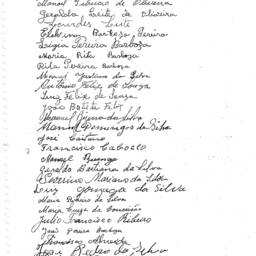 Manoel Tiburcio de Oliveira
Geralda Leite de Oliveira
Lourdes Leite
Barbosa Pereira
Ligia Pereira Barboza
Maria Rita Barboza
Rita Pereira Barboza
Manoel Gustavo da Silva
Antônio Felix de Souza
Luiz Felix de Souza
João Batista Felix
Manoel da Silva
Manoel Domingos da Silva
José Caetano
Francisco Caboclo
Manoel
Geraldo Barbosa da Silva
Severino Mariano da Silva
Luiz Gonzaga da Silva
Maria Ribeiro da Silva
Maria Luiza da Conceição
Julio Francisco Ribeiro
José Barboza
Almeida
Pedro da Silva